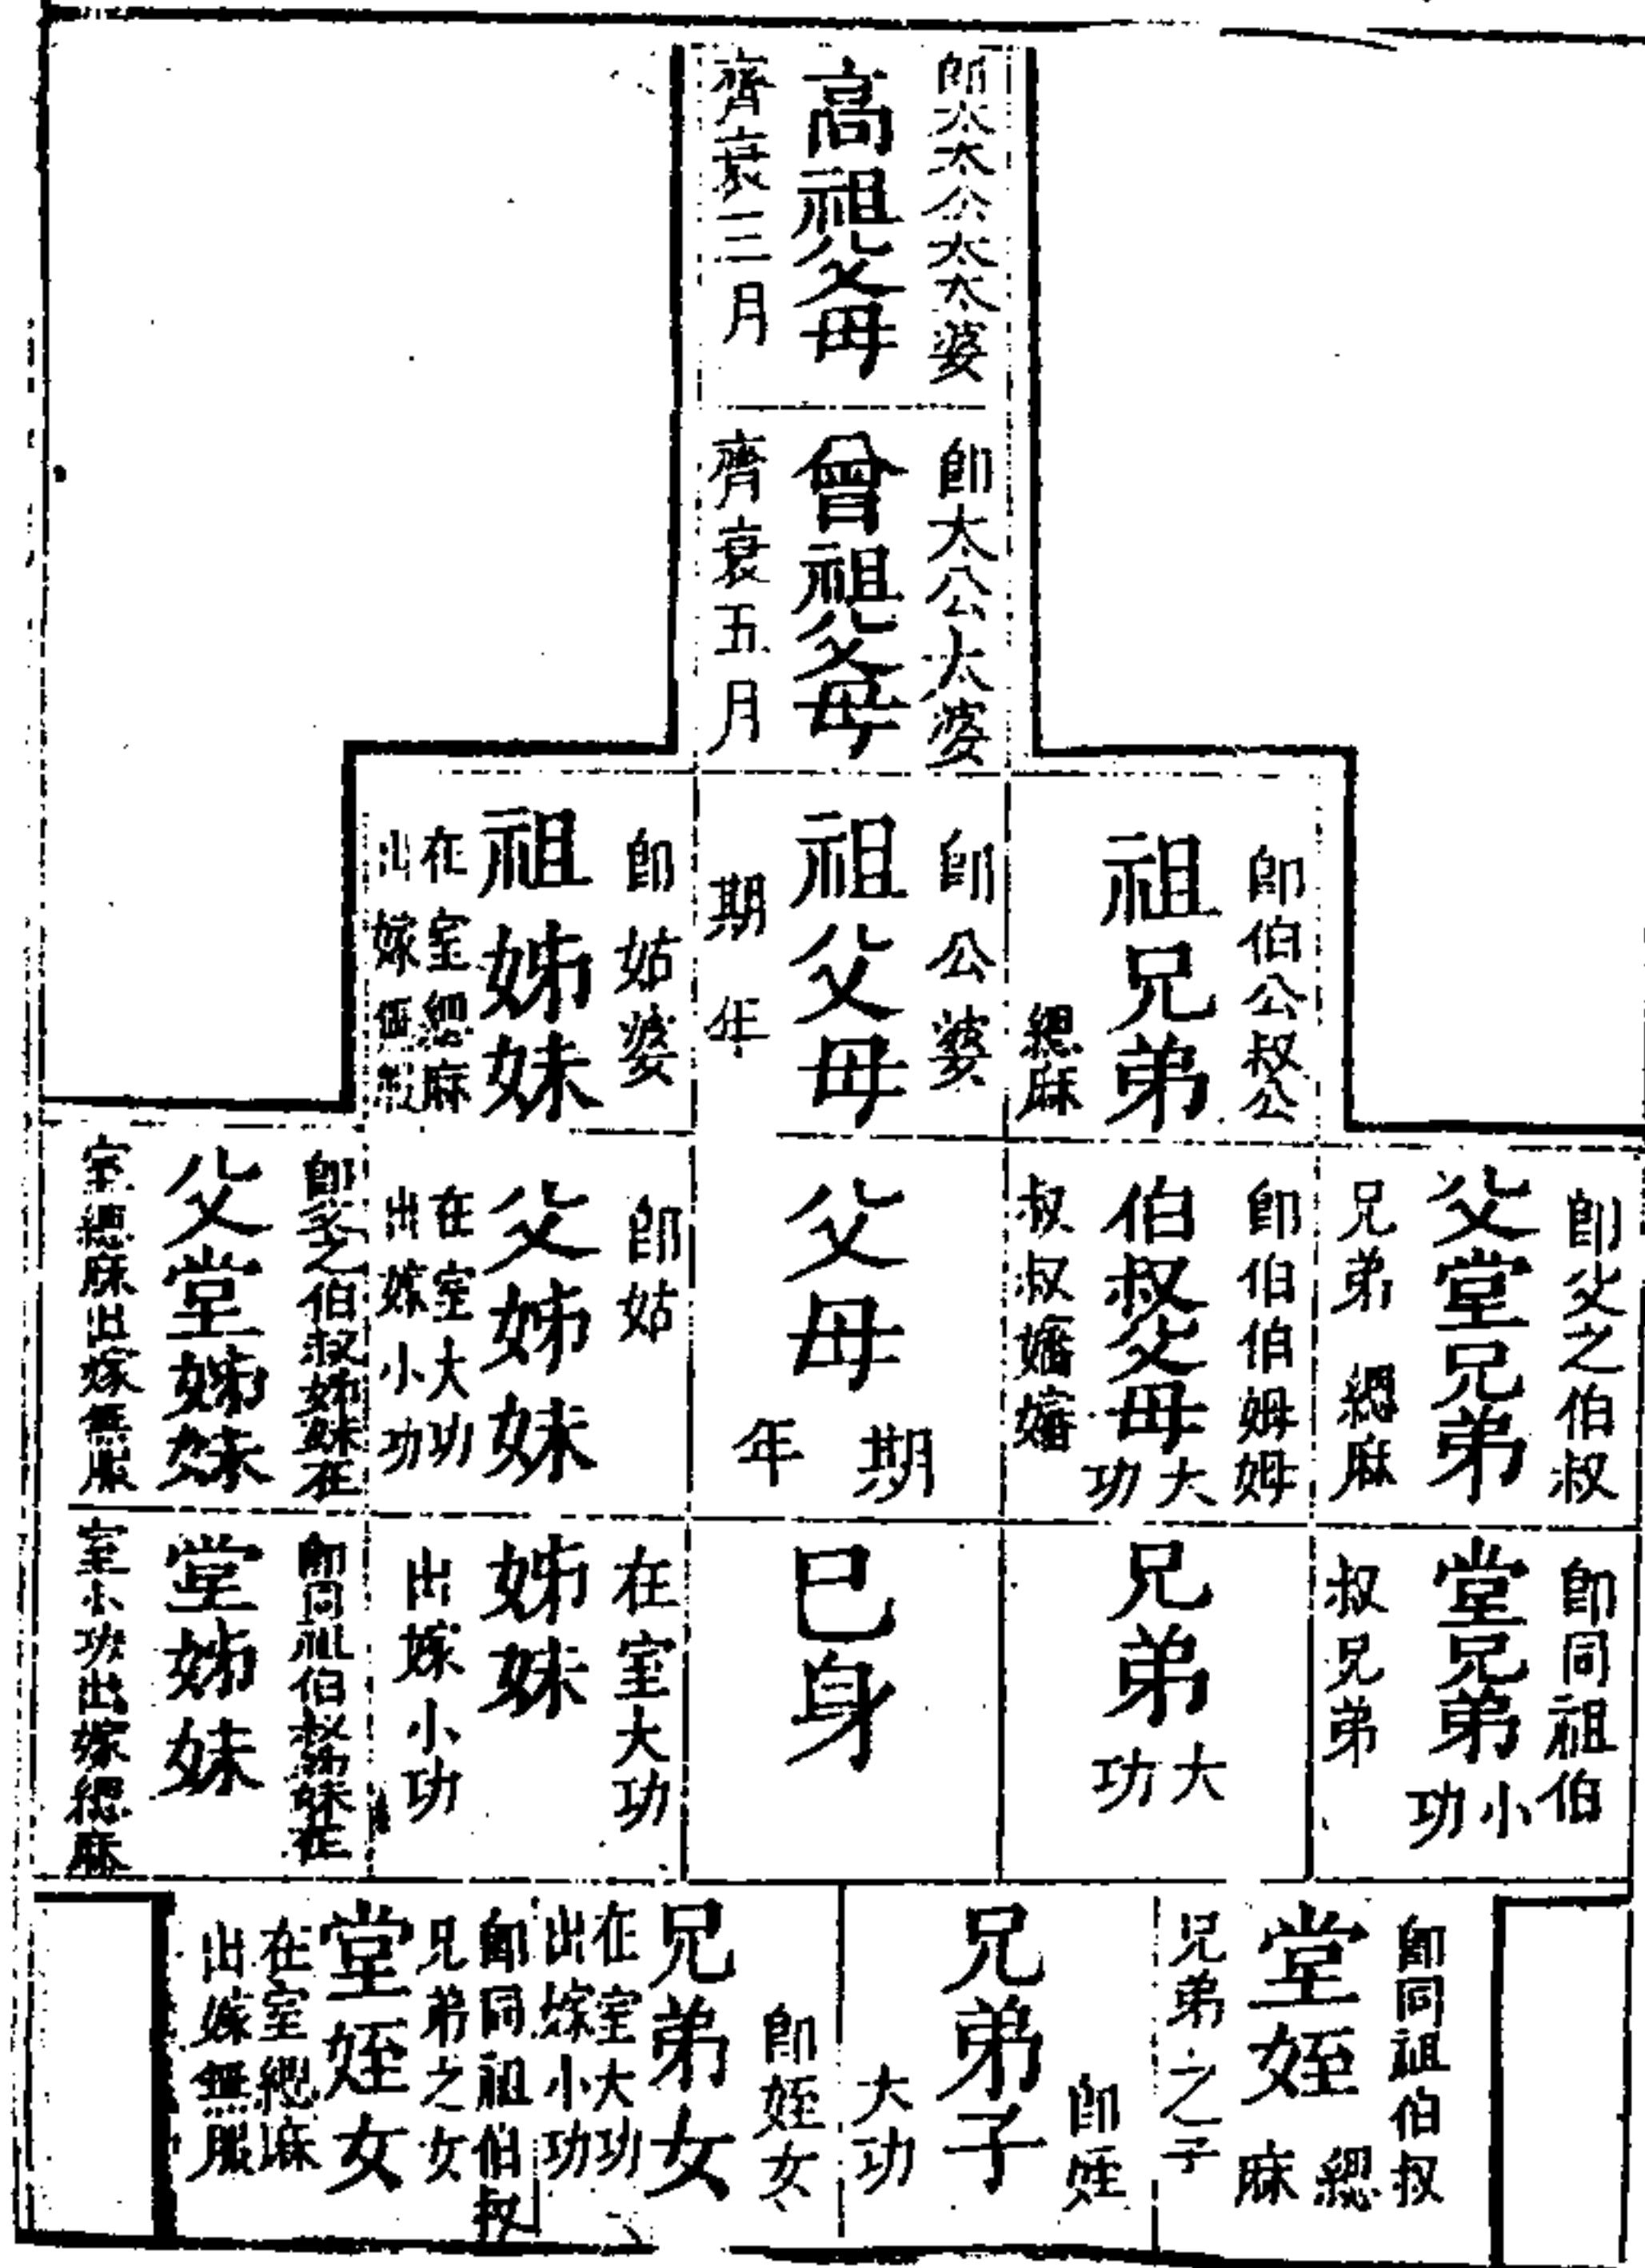 即太太公太太婆
高祖父母
齊衰三月
即太公太婆
曾祖父母
齊衰五月
即伯公叔公
祖兄弟
緦麻
即公婆
祖父母
期年
即姑婆
祖姊妹
在室緦麻
出嫁無服
即父之伯叔
父堂兄弟
兄弟 緦麻
即伯伯姆姆
伯叔父母
大功
叔叔嬸嬸
父母
期年
即姑
父姊妹
在室大功
出嫁小功
即父之伯叔姊妹在
父堂姊妹
室緦麻出嫁無服
即同祖伯
堂兄弟
小功
叔兄弟
兄弟
大功
己身
在室大功
姊妹
出嫁小功
即同祖伯叔姊妹在
堂姊妹
室小功出嫁緦麻
即同祖伯叔
堂姪
緦麻
兄弟之子
即姪
兄弟子
大功
即姪女
兄弟女
在室大功
出嫁小功
即同祖伯叔
兄弟之女
堂姪女
在室緦麻
出嫁無服